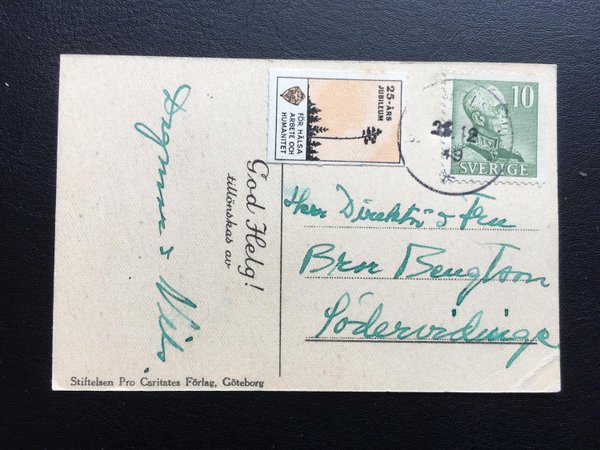 God Helg!
tillönskas av
Dagmar & Nils.
25-ÅRS
JUBILEUM
FÖR HÄLSA
ARBETE OCH
HUMANITET
10
SVERIGE
12
49
Herr Direktör & Fru
Bror Bengtson
Södervidinge
Stiftelsen Pro Caritates Förlag, Göteborg